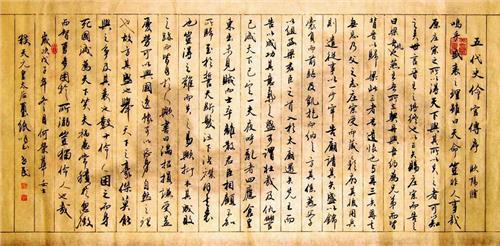 五代史伶官傳序 歐陽脩
嗚呼盛衰之理雖曰天命豈非人事哉
原莊宗之所以得天下與其所以失之者可以知
之矣世言晉王之將終也以三矢賜莊宗而告之
曰梁吾仇也燕王吾所立契丹與吾約為兄弟而皆
背晉以歸梁此三者吾遺恨也與爾三矢爾其
無忘乃父之志莊宗受而藏之於廟其後用兵
則遣從事以一少牢告廟請其矢盛以錦
囊負而前驅及凱旋而納之方其係燕父子
以組函梁君臣之首入於太廟還矢先王而告
以成功其意氣之盛可謂壯哉及仇讎
已滅天下已定一夫夜呼亂者四應倉皇
東出未見賊而士卒離散君臣相顧不知
所歸至於誓天斷髮泣下沾襟何其衰
也豈得之難而失之易歟抑本其成敗
之跡而皆自於人歟書曰滿招損謙受益
憂勞可以興國逸豫可以亡身自然之理
也故方其盛也舉天下之豪傑莫能
與之爭及其衰也數十伶人困之而身
死國滅為天下笑夫禍患常積於忽微
而智勇多困於所溺豈獨伶人也哉
歲次戊子年冬月何榮華女士